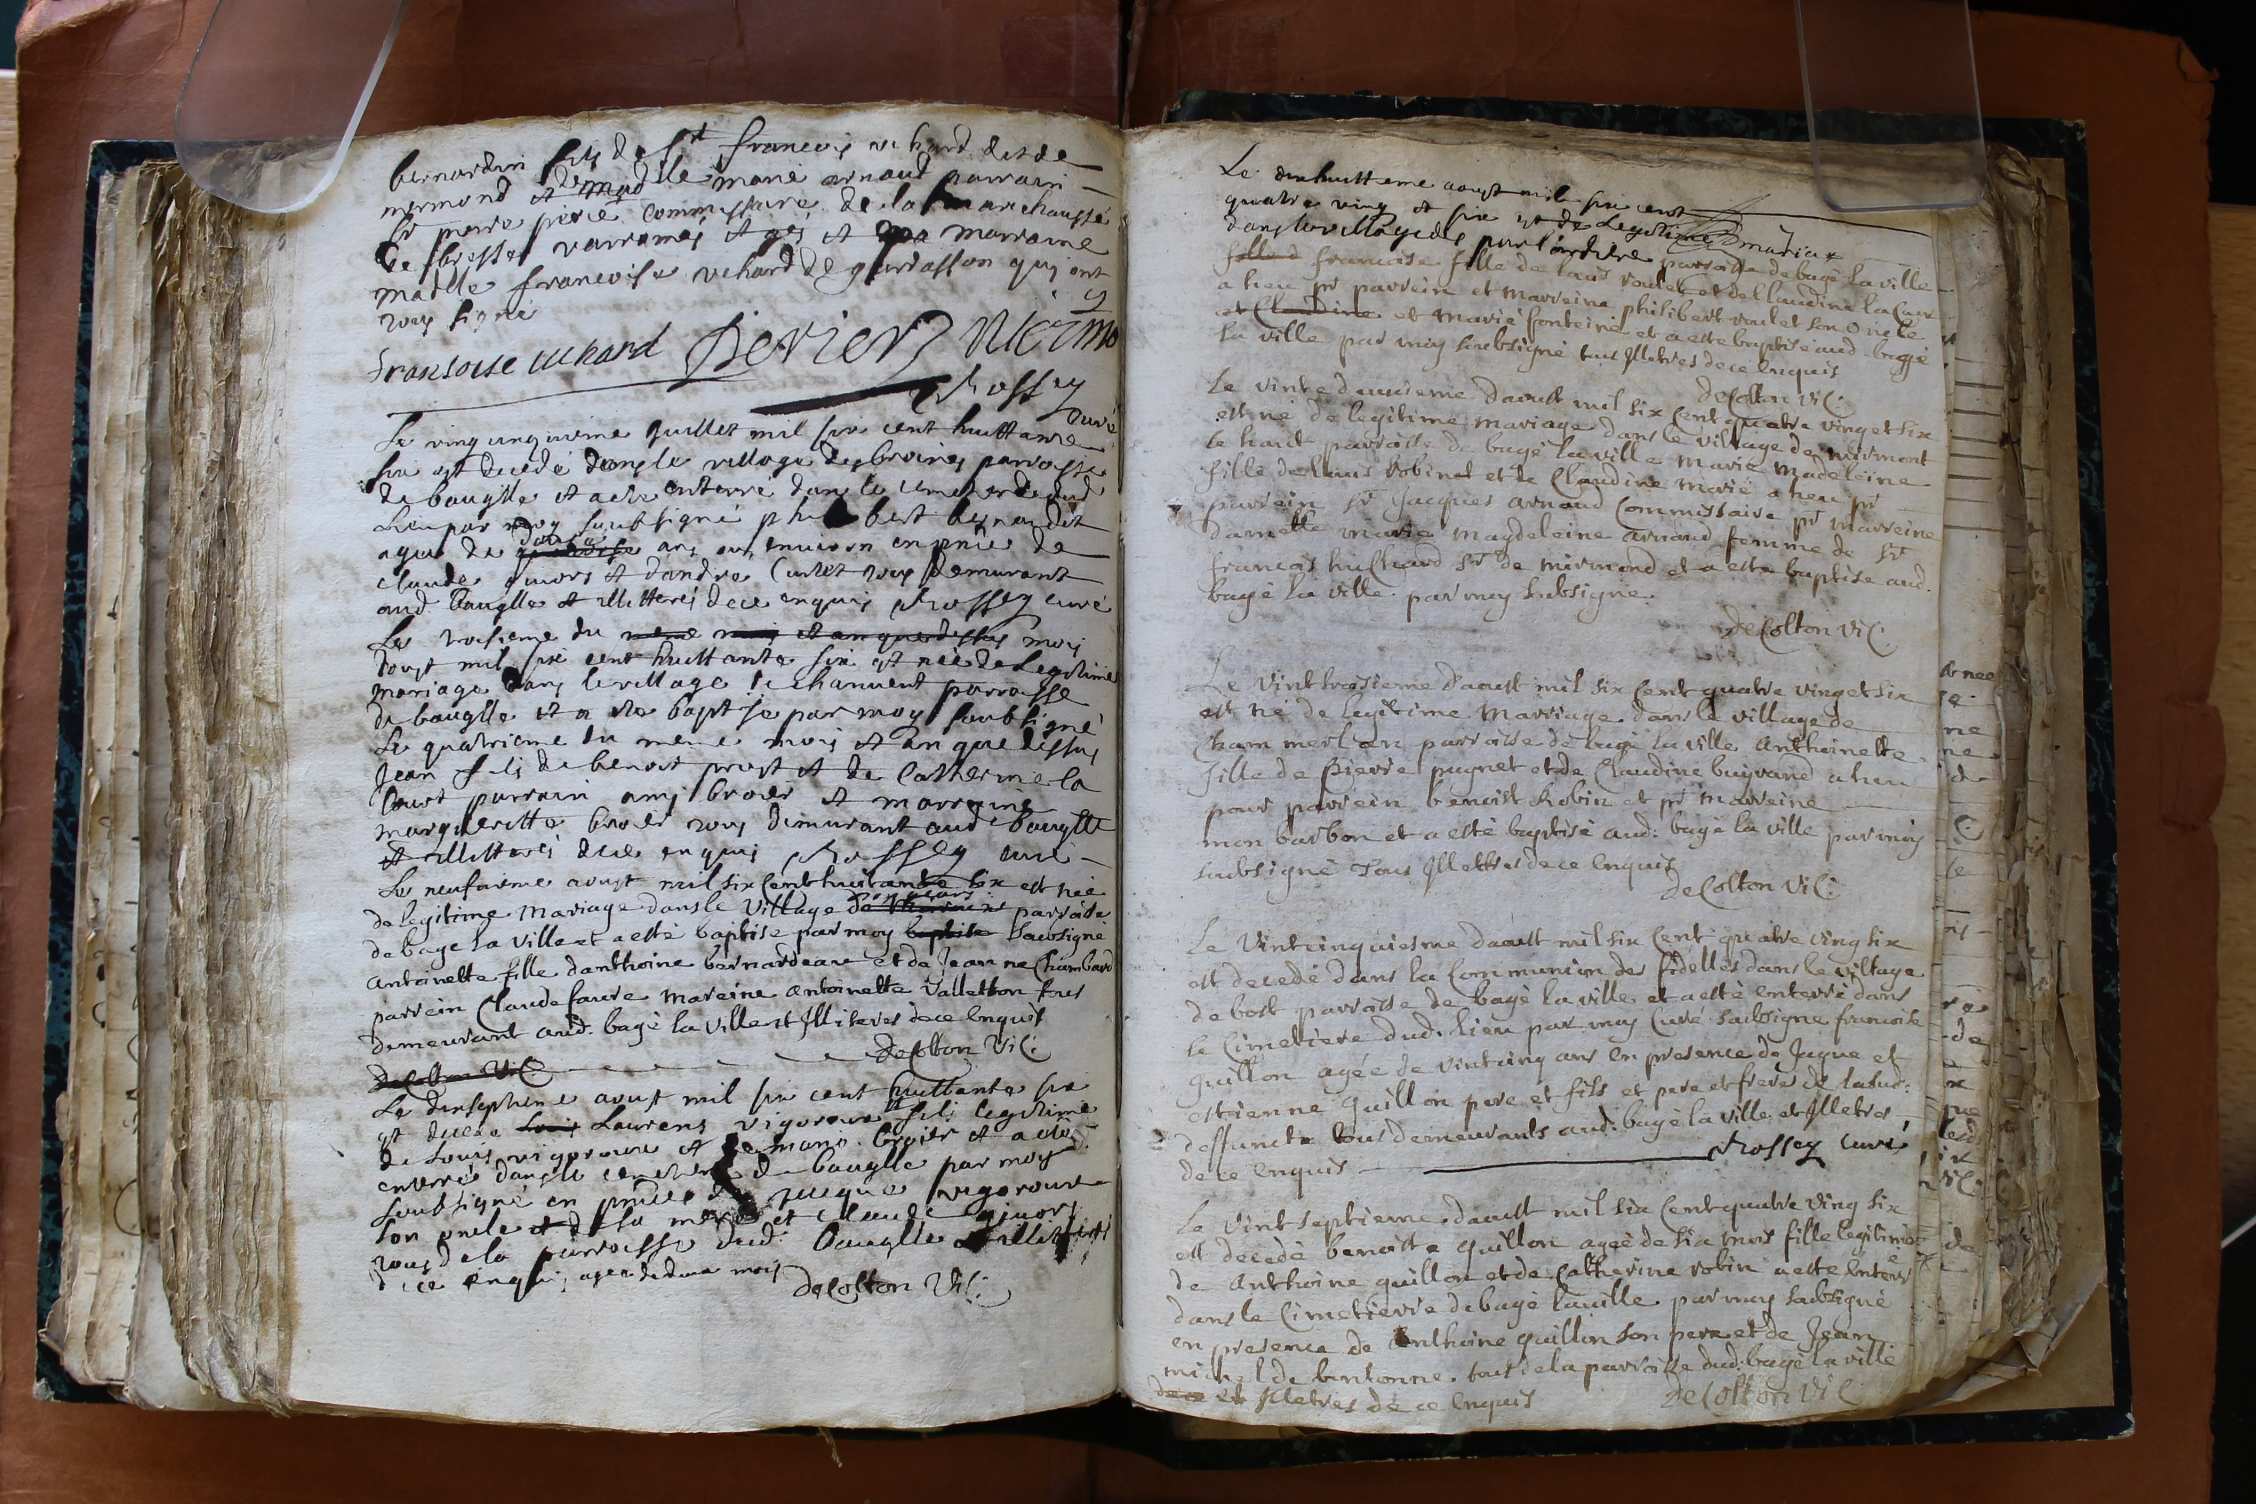 bernardin fils de Sr francois uchard des de
mermond et de madlle marie arnaud parrain
Sr pierre perie commissaire de la marechaussé
de bresse parrames et ges et marraine
madlle francoise uchard de qui ont
tous signé
fransoise uchard Perier
Chossey
curé
Le vingt unquieme Juillet mil six cent huittante
six est decedé dans le village des broires parroisse
de baugille et a ete enterré dans le cimetiere dud
Lieu par moy soubsigné philibert bernardet
agee de douse ans ou environ en pnce de
claude guiors et dandre Curlet tous demurant
aud baugille et illitterés de ce enquis Chossey curé
Le troisieme du mene mois et an que dessus mois
doust mil six cent huittante six est née de Legitime
mariage dans le village de chanuent parroisse
de baugille et a ete baptise par moy soubsigné
Le quatrieme du meme mois et an que dessus
Jean fils de benoit prost et de Catherine la
Court parrain amj broier et marraine
margueritte broier tous demurant aud baugille
et illitterés de ce enquis Chossey curé
Le neufvieme aoust mil six cent huitante six est née
de legitime mariage dans le village de parroisse
de bage la ville et a esté baptise par moy baptise soubsigné
antoinette fille danthoine bernardeau et de Jeanne Chambard
parrein Claude faure mareine antoinette Valletton tous
demeurant aud. bagé la ville et Illiterés de ce Enquis
deColton ViC:
deColton ViC
Le dixseptieme aoust mil six cent huittante six
est decede Louis Laurens vigoroux fils legitime
de Louis vigoroux et de marie broier et a ete
enterré dans le cemetiere de baugille par moy
soubsigné en pnce de Jacque vigoroux
son oncle et de sa mere et claude guiors
tous de la parroisse dud. baugille et illitterés
de ce enquis agee de deux mois
deColton ViC:
Le dixhuittieme aoust mil six cent
quatre ving et six est né de Legitime mariax
dans le village des par parroisse de bagé la ville
fille d francoise fille de Louis roulet et de Claudine la Cur
a heu pr parrein et marreine philibert roulet son oncle
et Claudine et Marie fonteine et a este baptisé aud. bagé
la ville par moy soubsigné tous Illetres de ce Enquis
deColton ViC:
Le vintedeuxieme daoust mil six Cent quatre ving et six
est né de legitime mariage dans le village de mirmont
le haut parroisse de bagé la ville Marie Madeleine
fille de Louis Robinet et de Claudine Marie a heu pr
parrein Sr Jacques Arnaud Commissaire pr marreine
damelle marie magdeleine arnaud femme de Sr
francois huchard Sr de mirmond et a este baptise aud.
bagé la ville par moy subsigne.
deColton ViC:
Le Vinttroisieme daoust mil six Cent quatre ving et six
est né de legitime Marriage dans le village de
Cham merlan parroisse de bagé la ville Anthoinette
fille de pierre pugnet et de Claudine buyrand a heu
pour parrein benoist Robin et pr Marreine
mon barbon et a esté baptisé aud: bagé la ville par moy
subsigné Tous Illettrés de ce Enquis
deColton ViC:
Le Vintcinquiesme daoust mil six Cent quatre ving six
est decedé dans la Communion des fidelles dans le village
de bost parroisse de bagé la ville et a esté enterré dans
le Cimetiere dud. lieu par moy Curé subsigne francoise
guillon agée de vintcinq ans en presence de Jaque et
estienne guillon pere et fils et pere et frere de lasud:
deffuncte tous demeurants aud: bagé la ville et Illetres
de ce enquis Chossey Curé
Le Vint septieme daoust mil six Cent quatre ving six
est decedé benoiste guillon ageé de six mois fille legitime
de Anthoine guillon et de Catherine robin a este enterré
dans le Cimetierre de bagé laville par moy subsigné
en presence de Anthoine guillon son pere et de Jean
michel de bentonne tous de la parroisse dud: bagé la ville
de ce et Illetres de ce Enquis deColton ViC